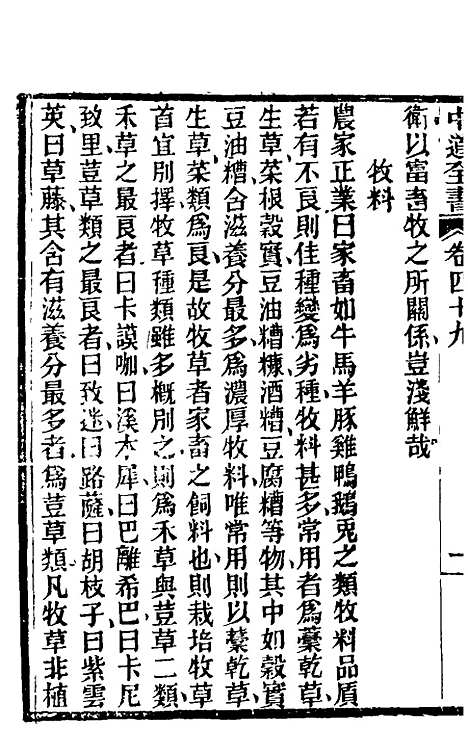 中道全書 卷四十九 一
衛以富畜牧之所關係豈淺鮮哉
牧料
農家正業曰家畜如牛馬羊豚雞鴨鵝兎之類牧料品質
若有不良則佳種變爲劣種牧料甚多常用者爲藁乾草
生草菜根穀實豆油糟糠酒糟豆腐糟等物其中如穀實
豆油糟含滋養分最多爲濃厚牧料唯常用則以藁乾草
生草菜類爲良是故牧草者家畜之飼料也則栽培牧草
首宜別擇牧草種類雖多概別之則爲禾草與荳草二類
禾草之最良者曰卡謨咖曰溪木犀曰巴離希巴曰卡尼
致里荳草類之最良者曰致迷曰路薩曰胡枝子曰紫雲
英曰草藤其含有滋養分最多者爲荳草類凡牧草非植